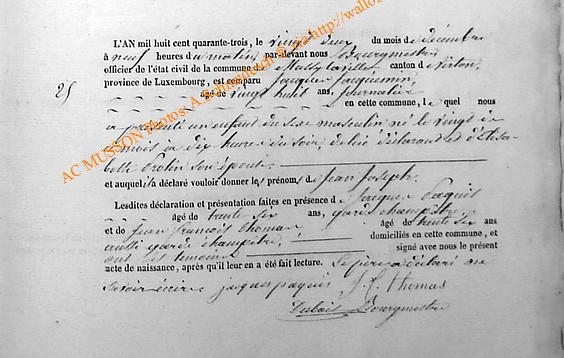 L'AN mil huit cent quarante-trois, le vingt deux du mois de décembre
à neuf heures du matin, par-devant nous Bourgmestre
officier de l'état civil de la commune de canton de Virton,
province de Luxembourg, est comparu Jacques Jacquemin,
25
âgé de vingt huit ans, journalier
en cette commune, lequel nous
a présenté un enfant du sexe masculin né le vingt de
ce mois à dix heures du soir, de lui déclarant et d'Elisa-
beth son épouse
et auquel il a déclaré vouloir donner les prénoms de Jean Joseph.
Lesdites déclaration et présentation faites en présence de Jacques Paquis
âgé de trente six ans, garde champêtre
et de Jean françois thomas, âgé de trente six ans
aussi garde champêtre, domiciliés en cette commune, et
ont les témoins signé avec nous le présent
acte de naissance, après qu'il leur en a été fait lecture. Le père a déclaré ne
savoir écrire jacques paquis J. f. thomas
Dubois Bourgmestre
AC MUSSON Photos: A.Schroeder via http://wallo